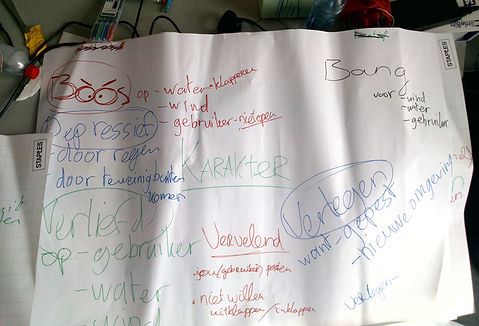 Boos op - water-klapperen
- wind
- gebruiker - niet open
Bang
voor wind
- water
- gebruiker
STAPLES
STAPLES
STAPLES
Depressief
- door regen
- door te weinig buiten
komen
KARAKTER
Verliefd
op - gebruiker
- water
- wind
Vervelend
(gebruiker) pesten
. niet willen
uitklappen / inklappen
Verlegen
want - gepest
- nieuwe omgeving
verlegen -